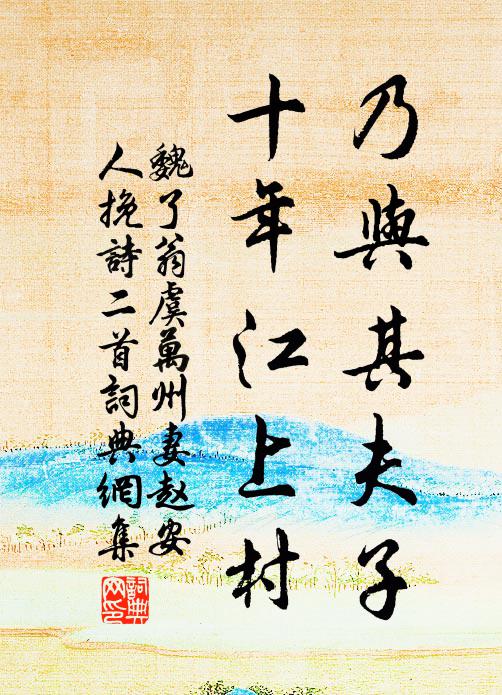 乃與其夫子
十年江上村
魏了翁虞萬州妻赵安
人挽詩二首詞典網集
詞典
网印